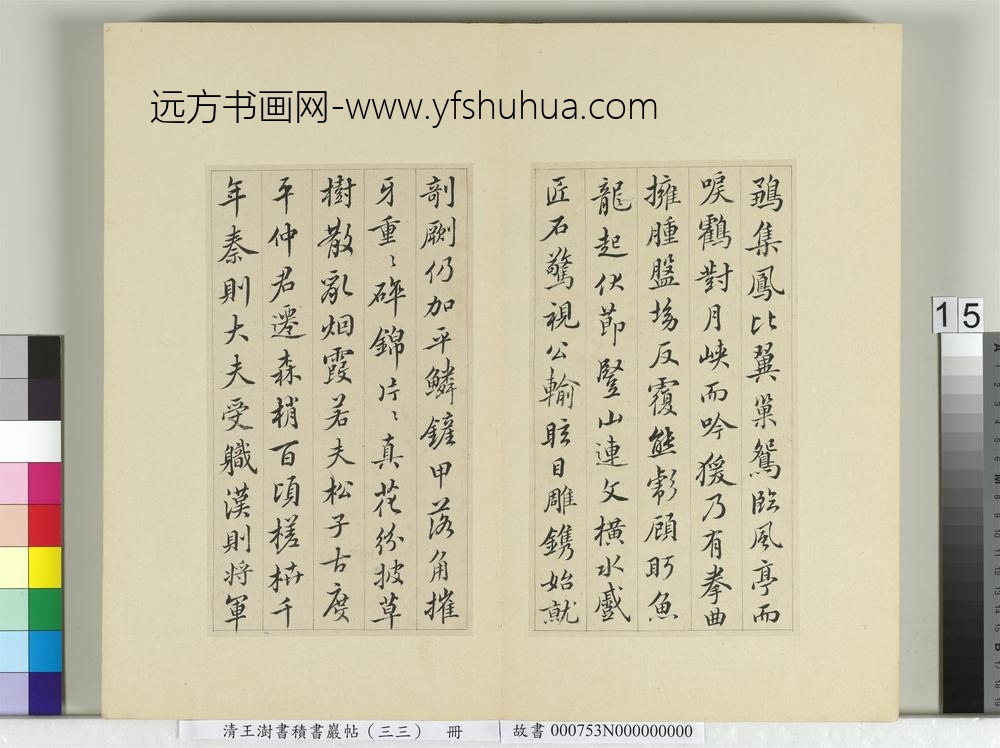 远方书画网-www.yfshuhua.com
鵶集鳳比翼巢鴛臨風亭而
唳鶴對月峽而吟猨乃有拳曲
擁腫盤坳反覆熊彪顧盼魚
龍起伏節豎山連文橫水蹙
匠石驚視公輸眩目雕鐫始就
剞劂仍加平鱗鏟甲落角摧
牙重〻碎錦片〻真花紛披草
樹散亂烟霞若夫松子古度
平仲君遷森梢百頃槎枿千
年秦則大夫受職漢則將軍
15
清王澍書積書巖帖（三三） 冊
故書 000753N000000000